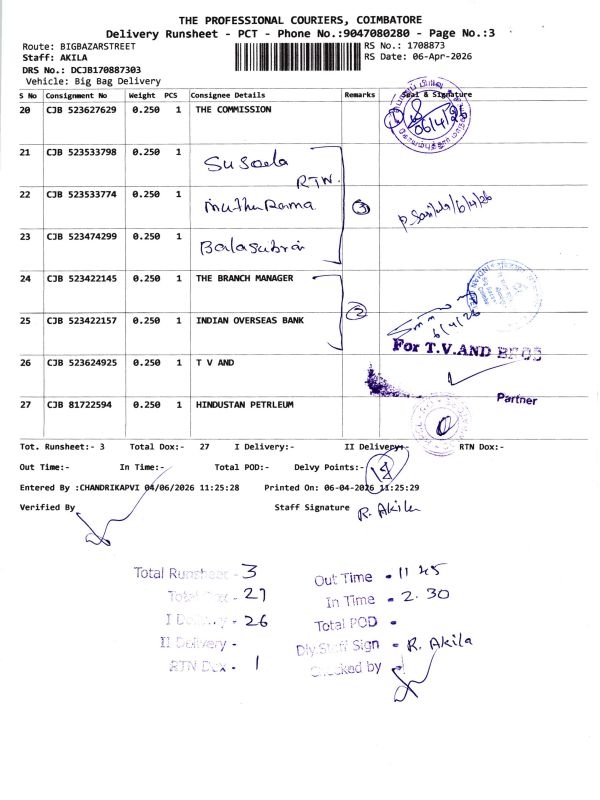 THE PROFESSIONAL COURIERS, COIMBATORE
Delivery Runsheet - PCT - Phone No.:9047080280 - Page No.:3
Route: BIGBAZARSTREET
RS No.: 1708873
Staff: AKILA
RS Date: 06-Apr-2026
DRS No.: DCJB170887303
Vehicle: Big Bag Delivery
S No Consignment No Weight PCS Consignee Details Remarks Seal & Signature
20 CJB 523627629 0.250 1 THE COMMISSION
06/4/26
21 CJB 523533798 0.250 1 Suseela
RTN.
22 CJB 523533774 0.250 1 MuthuRama 3
6/4/26
23 CJB 523474299 0.250 1 Balasubrai
24 CJB 523422145 0.250 1 THE BRANCH MANAGER
2
25 CJB 523422157 0.250 1 INDIAN OVERSEAS BANK
6/4/26
For T.V.AND BROS
26 CJB 523624925 0.250 1 T V AND
Partner
27 CJB 81722594 0.250 1 HINDUSTAN PETRLEUM
Tot. Runsheet:- 3 Total Dox:- 27 I Delivery:- II Delivery:- RTN Dox:-
Out Time:- In Time:- Total POD:- Delvy Points:- 18
Entered By :CHANDRIKAPVI 04/06/2026 11:25:28 Printed On: 06-04-2026 11:25:29
Verified By Staff Signature R. Akila
Total Runsheet - 3
Out Time - 11 45
Total Dox - 27
In Time - 2.30
I Delivery - 26
Total POD -
II Delivery -
Dly.Staff Sign - R. Akila
RTN Dox - 1
Checked by -